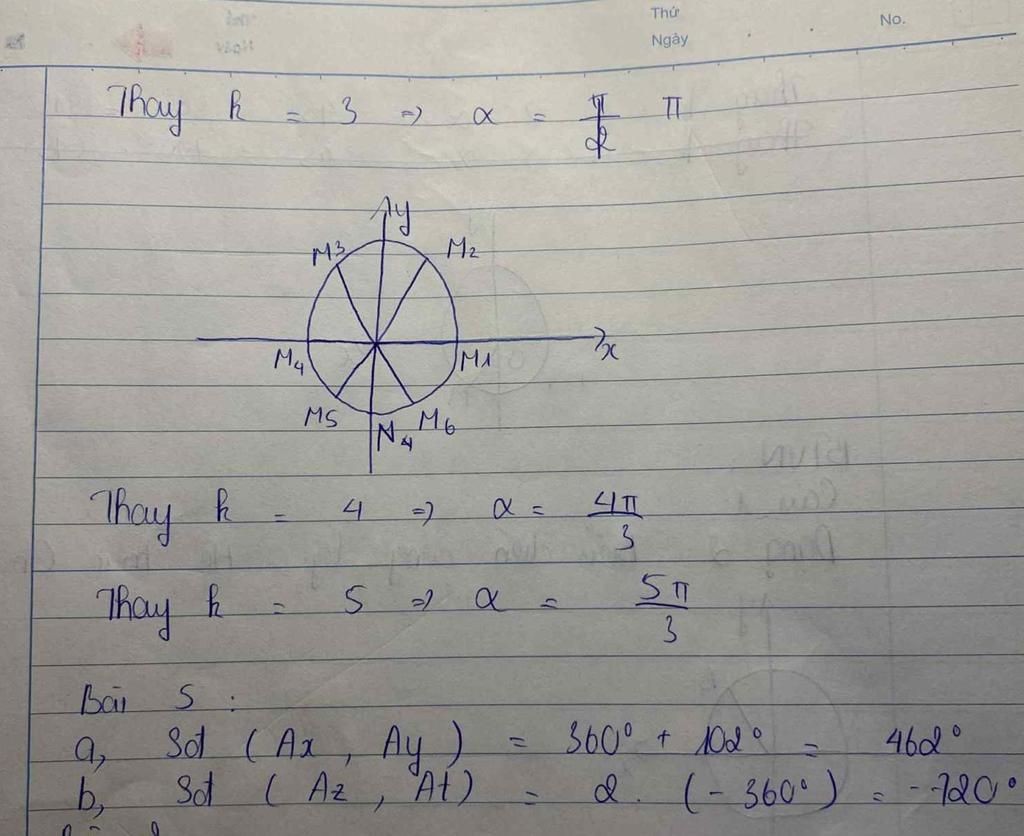 Thứ
No.
Ngày
Thay k = 3 => α = π/2 π
y
M3
M2
x
M4
M1
M5
N4
M6
Thay k = 4 => α = 4π/3
Thay k = 5 => α = 5π/3
Bài 5 :
a, Sđ ( Ax , Ay ) = 360° + 102° = 462°
b, Sđ ( Az , At ) = 2 . ( - 360° ) = - 720°